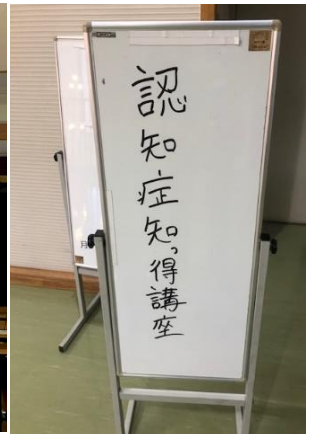 認知症知っ得講座
月